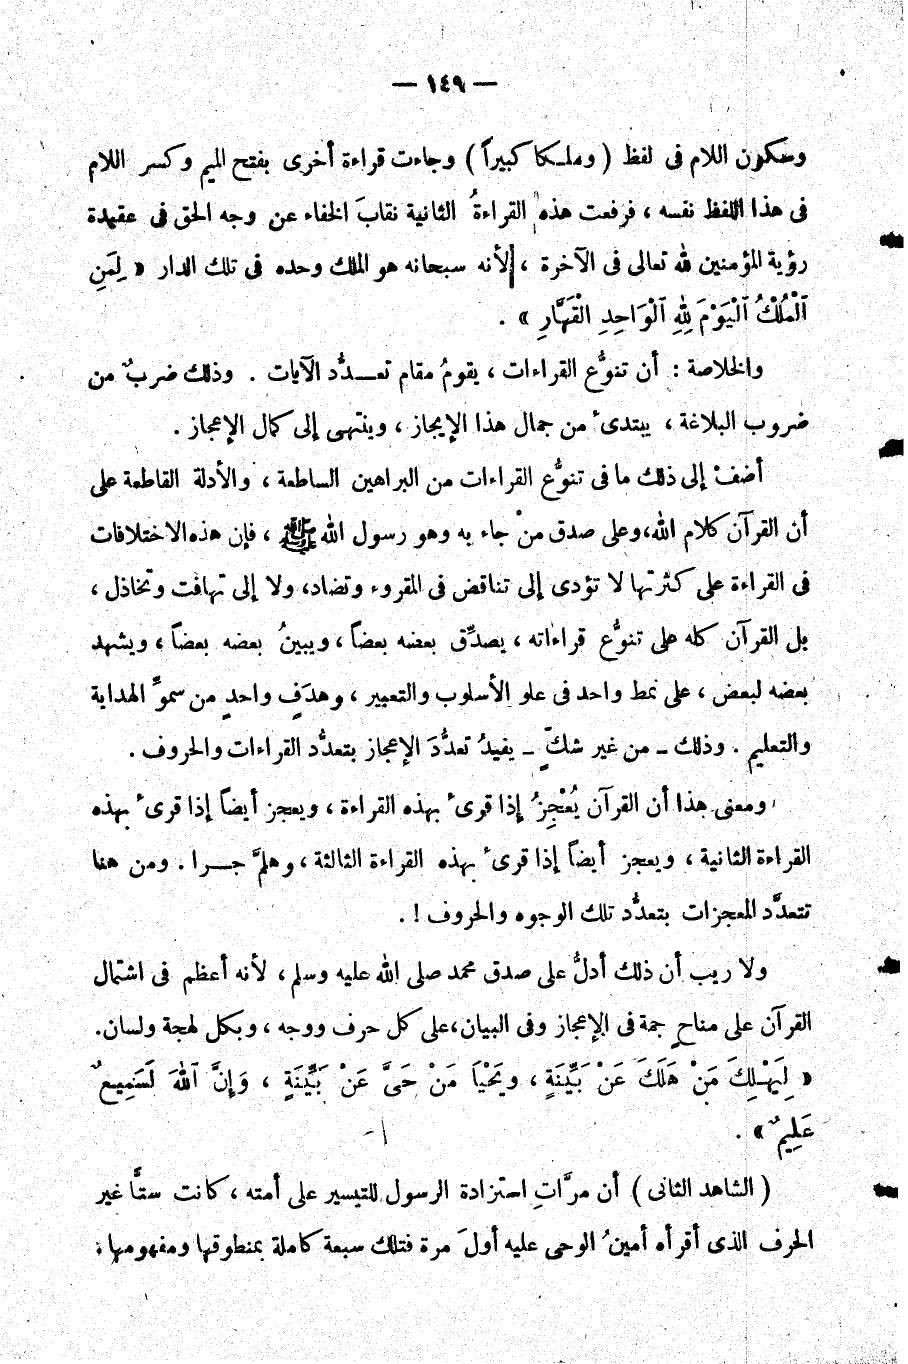 — ١٤٩ —
وسكون اللام فى لفظ ( وملـكا كبيراً ) وجاءت قراءة أخرى بفتح الميم وكسر اللام
فى هذا اللفظ نفسه ، فرفعت هذه القراءةُ الثانية نقابَ الخفاء عن وجه الحق فى عقيدة
رؤية المؤمنين لله تعالى فى الآخرة ، لأنه سبحانه هو الملك وحده فى تلك الدار « لِمَنِ
ٱلْمُلْكُ ٱلْيَوْمَ لِلهِ ٱلْوَاحِدِ الْقَهَّارِ » .
والخلاصة : أن تنوُّع القراءات ، يقومُ مقام تعـــدُّد الآيات . وذلك ضربٌ من
ضروب البلاغة ، يبتدىء من جمال هذا الإيجاز ، وينتهى إلى كمال الإعجاز .
أضفْ إلى ذلك ما فى تنوُّع القراءات من البراهين الساطعة ، والأدلة القاطعة على
أن القرآن كلام الله،وعلى صدق منْ جاء به وهو رسول الله ﷺ ، فإن هذه الاختلافات
فى القراءة على كثرتها لا تؤدى إلى تناقض فى المقروء وتضاد، ولا إلى تهافت وتخاذل ،
بل القرآن كله على تنوُّع قراءاته ، يصدِّق بعضه بعضاً ، ويبينُ بعضه بعضاً ، ويشهد
بعضه لبعض ، على نمط واحد فى علو الأسلوب والتعبير ، وهدَفٍ واحدٍ من سموِّ الهداية
والتعليم . وذلك ـ من غير شكٍّ ـ يفيدُ تعدُّدَ الإعجاز بتعدُّد القراءات والحروف .
ومعنى هذا أن القرآن يُعْجِزُ إذا قرىء بهذه القراءة ، ويعجز أيضاً إذا قرىء بهذه
القراءة الثانية ، ويعجز أيضاً إذا قرىء بهذه القراءة الثالثة ، وهلمَّ جـــرا . ومن هنا
تتعدَّد المعجزات بتعدُّد تلك الوجوه والحروف ! .
ولا ريب أن ذلك أدلُّ على صدق محمد صلى الله عليه وسلم ، لأنه أعظم فى اشتمال
القرآن على مناحٍ جمة فى الإعجاز وفى البيان،على كل حرف ووجه ، وبكل لهجة ولسان.
« لِيَهْـلِكَ مَنْ هَلَكَ عَنْ بَيِّنَةٍ ، ويَحْيَا مَنْ حَىَّ عَنْ بَيِّنَةٍ ، وَإِنَّ ٱللهَ لَسَمِيعٌ
عَلِيمٌ » .
( الشاهد الثانى ) أن مرَّاتِ استزادة الرسول للتيسير على أمته ، كانت ستًّا غير
الحرف الذى أقرأه أمينُ الوحى عليه أولَ مرة فتلك سبعة كاملة بمنطوقها ومفهومها ؛